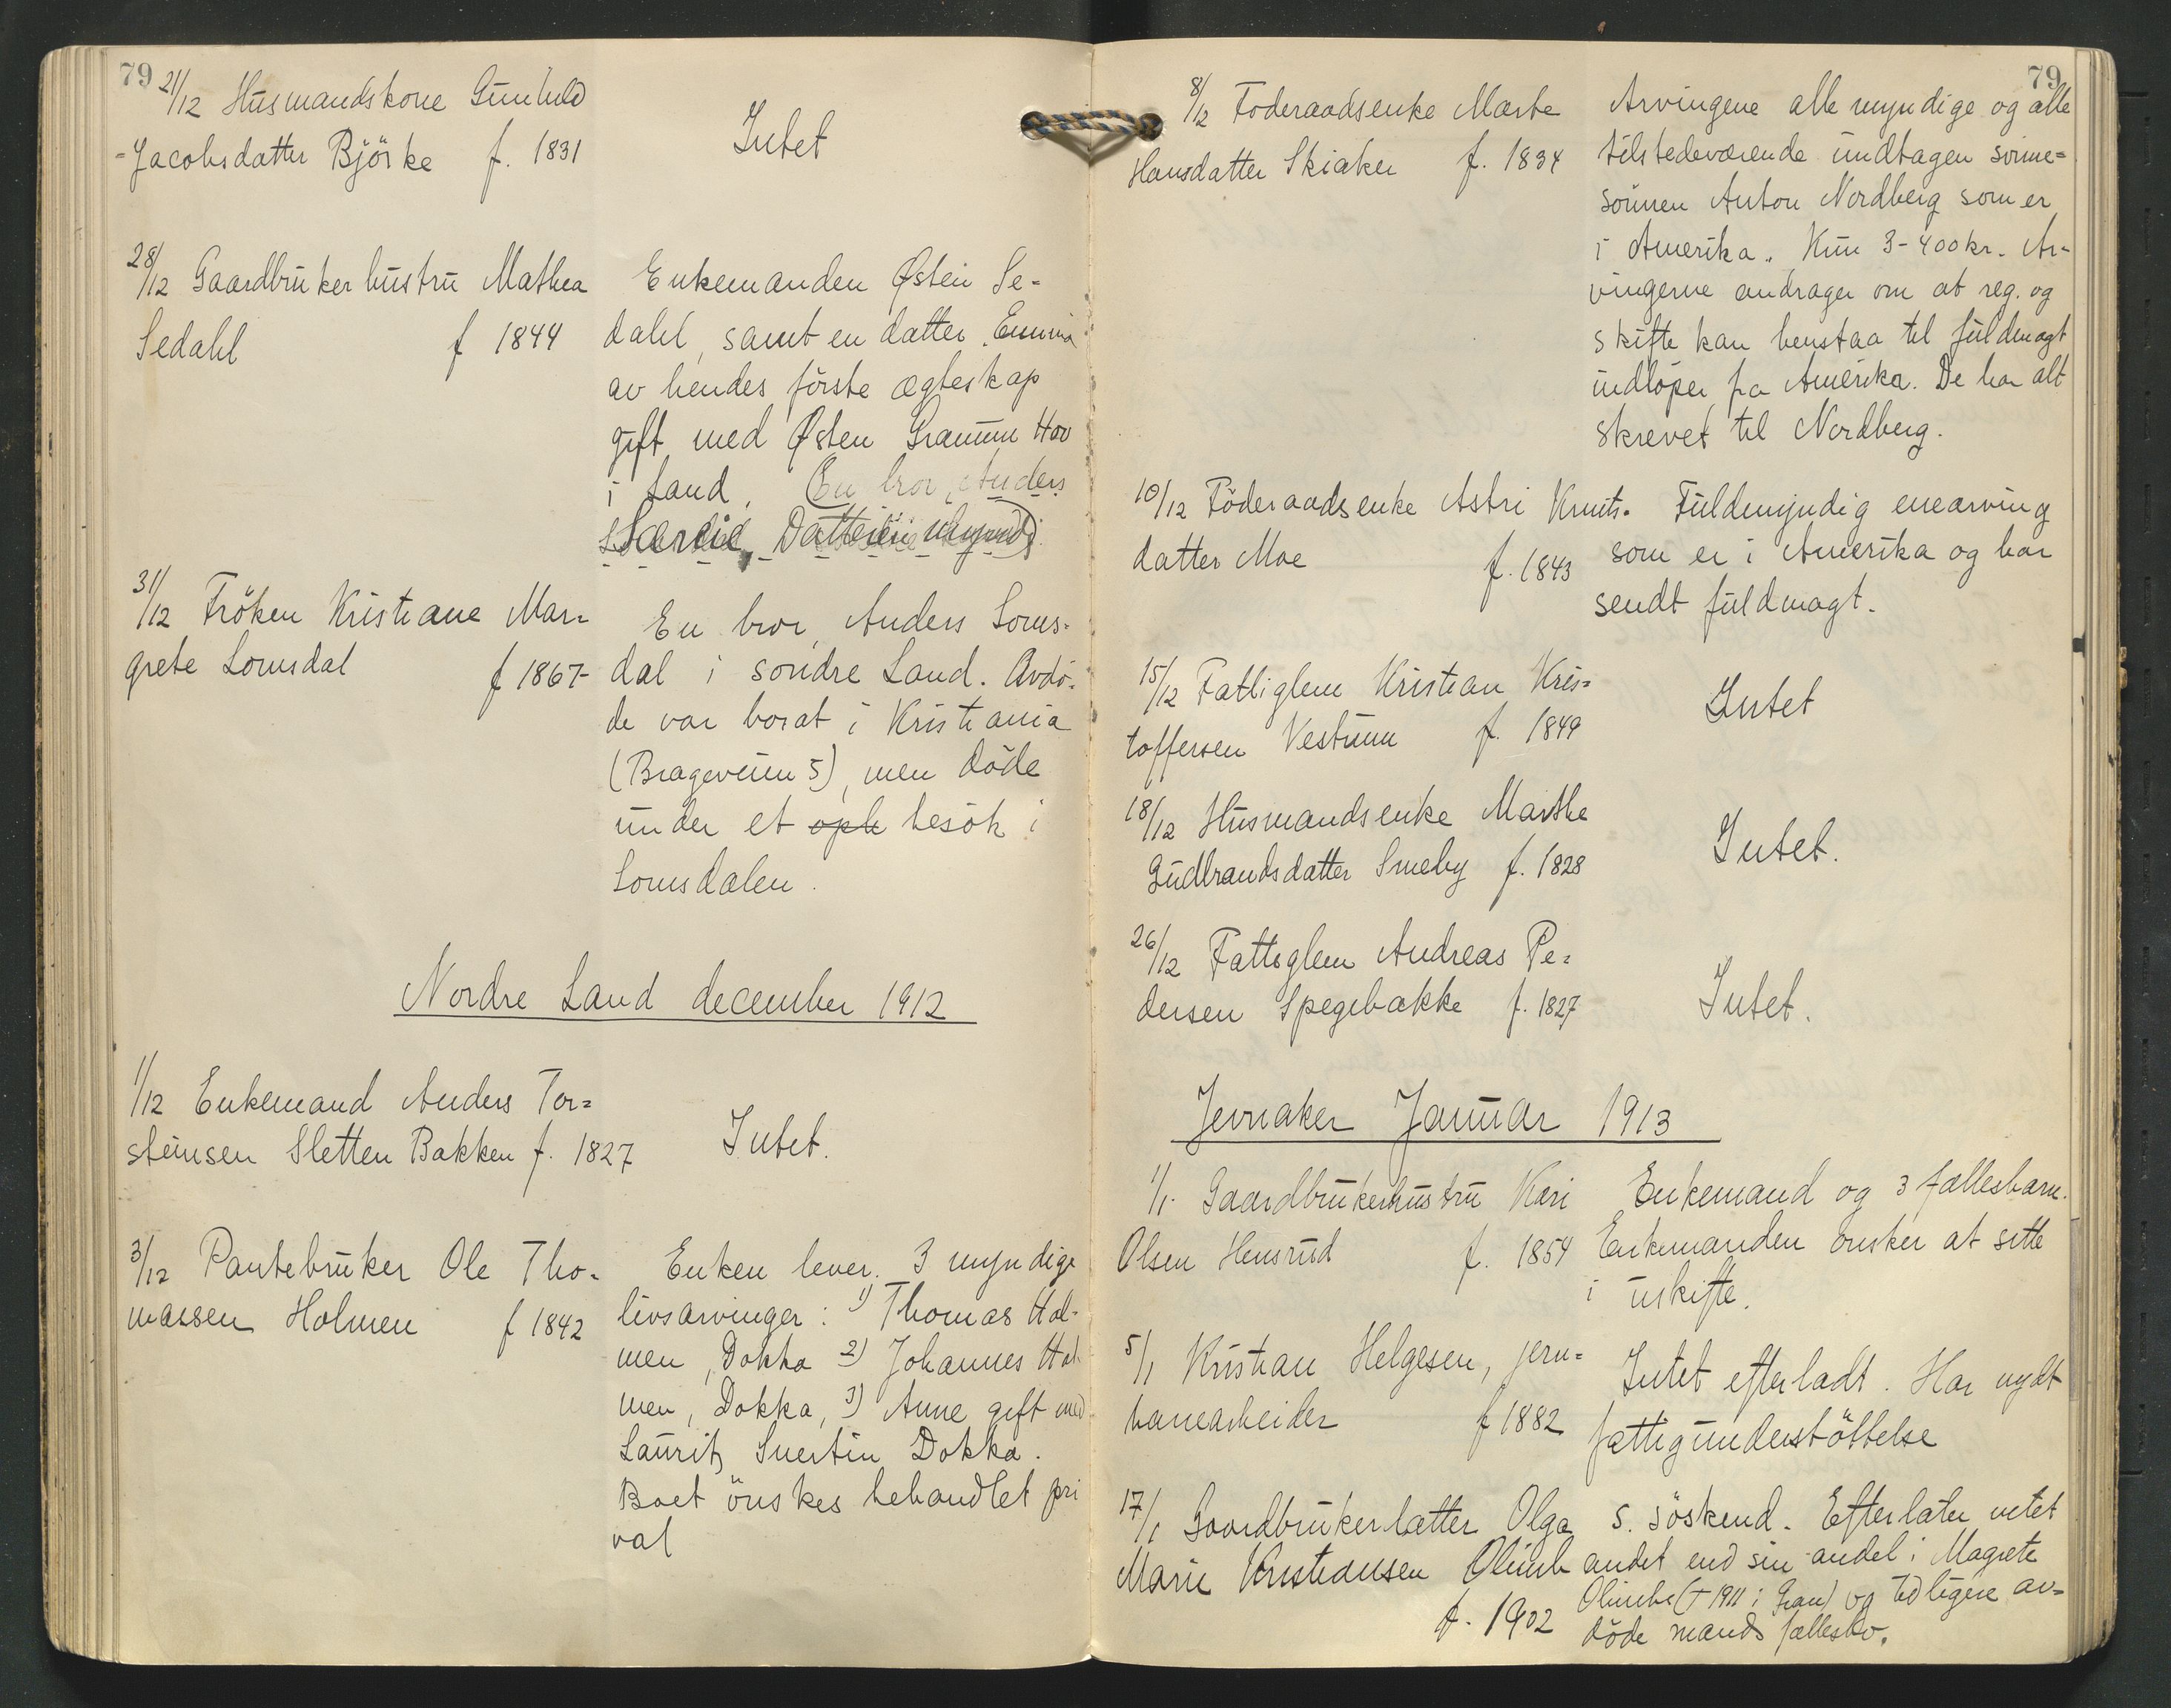 79
21/12 Husmandskone Gunhild
Jacobsdatter Björke f. 1831
Intet
28/12 Gaardbrukerhustru Mathea
Sedahl f 1844
Enkemanden Østein Se-
dahl, samt en datter Emma
av hendes förste ægteskap
gift med Østen Hov
i Land. En bror, Anders
Datteren
31/12 Fröken Kristiane Mar-
grete Lomsdal f 1867
En bror, Anders Loms-
dal i söndre Land. Avdö-
de var bosat i Kristiania
(Brageveien 5), men döde
under et oph besök i
Lomsdalen.
Nordre Land december 1912
1/12 Enkemand Anders Tor-
steinsen Sletten Bakken f. 1827
Intet.
3/12 Partebruker Ole Tho-
massen Holmen f 1842
Enken lever. 3 myndige
livsarvinger: 1) Thomas Hol-
men, Dokka 2) Johannes Hol-
men, Dokka, 3) Anne gift med
Laurits Dokka.
Boet önskes behandlet pri
vat
79
8/12 Föderaadsenke Marte
Hansdatter Skiaker f. 1834
Arvingene alle myndige og alle
tilstedeværende undtagen sönne-
sönnen Anton Nordberg som er
i Amerika. Kun 3-400 kr. Ar-
vingerne andrager om at reg. og
skifte kan henstaa til fuldmagt
indlöper fra Amerika. De har alt
skrevet til Nordberg.
10/12 Föderaadsenke Astri Knuts-
datter Moe f. 1843
Fuldmyndig enearving
som er i Amerika og har
sendt fuldmagt.
15/12 Fattiglem Kristian Kris-
toffersen Vestrum f. 1849
Intet
18/12 Husmandsenke Marthe
Gudbrandsdatter Smeby f. 1828
Intet.
26/12 Fattiglem Andreas Pe-
dersen Spegebakke f. 1827
Intet.
Jevnaker Januar 1913
1/1. Gaardbrukerhustru Kari
Olsen Hensrud f. 1854
Enkemand og 3 fællesbarn.
Enkemanden önsker at sitte
i uskifte.
5/1 Kristian Helgesen, jern-
banearbeider f 1882
Intet efterladt. Har nydt
fattigunderstöttelse
17/1 Gaardbrukerdatter Olga
Marie Kristiansen Olimb
f. 1902
5. söskend. Efterlater intet
andet end sin andel i Magrete
Olimbs († 1911 i Gran) og tidligere av-
döde mands fællesbo.